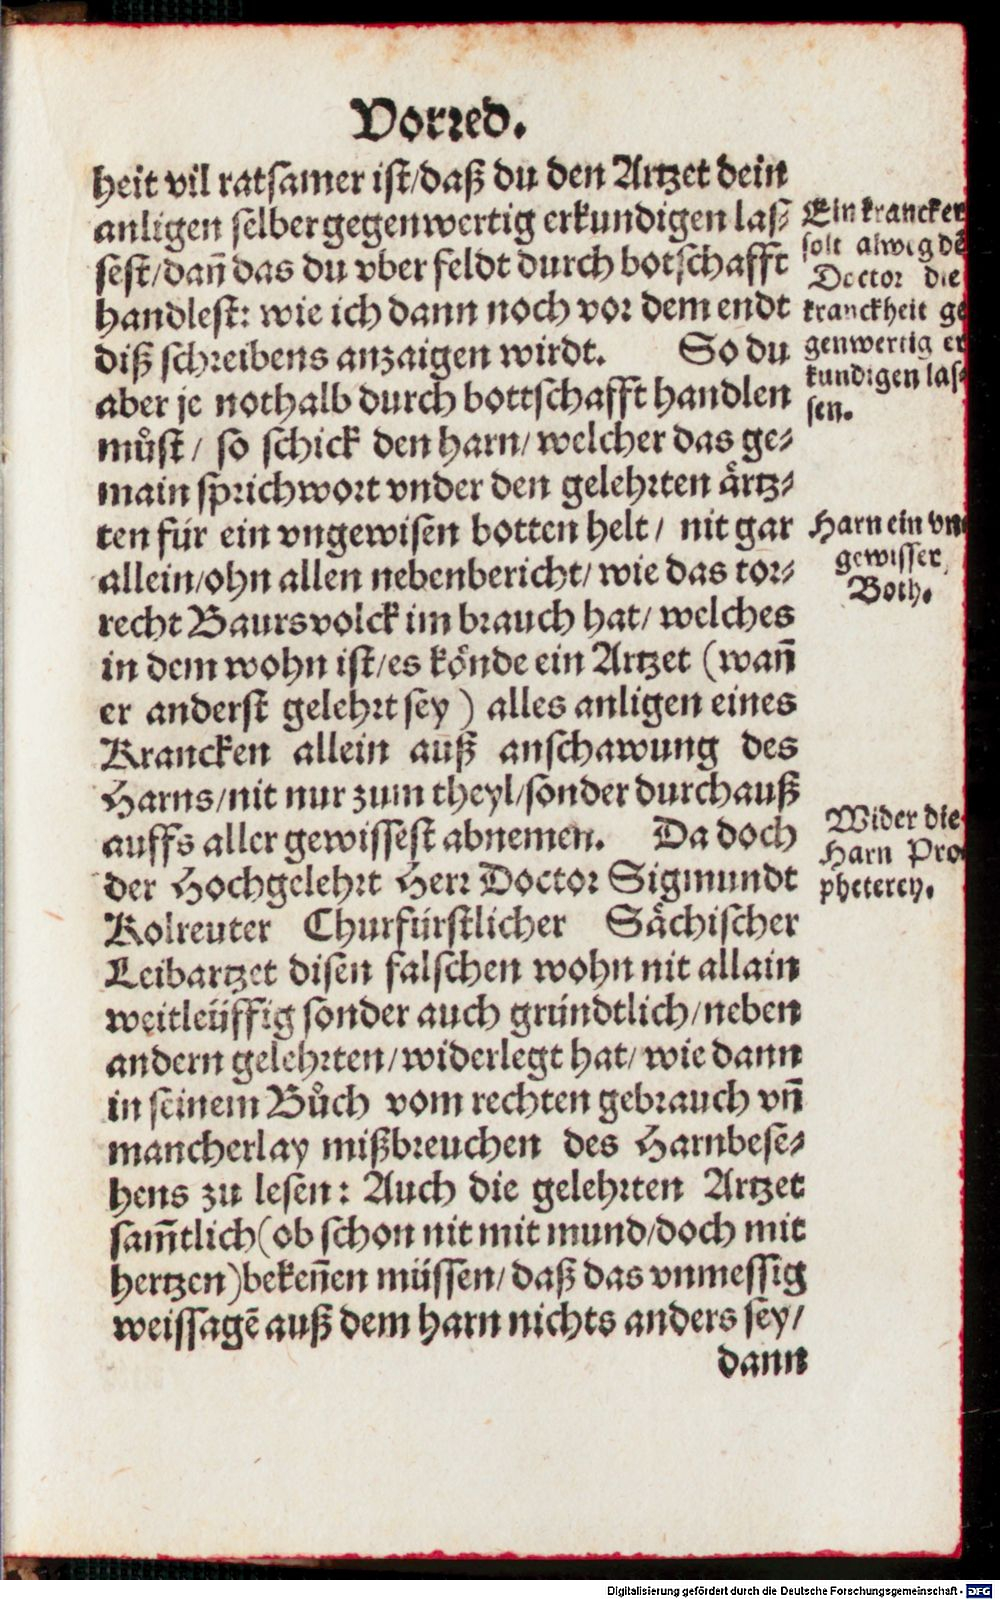 Vorred.
heit vil ratsamer ist/daß du den Artzet dein
anligen selber gegenwertig erkundigen las-
sest/dañ das du vber feldt durch botschafft
handlest: wie ich dann noch vor dem endt
diß schreibens anzaigen wirdt. So du
aber je nothalb durch bottschafft handlen
můst/ so schick den harn/ welcher das ge-
main sprichwort vnder den gelehrten ärtz-
ten für ein vngewisen botten helt/ nit gar
allein/ohn allen nebenbericht/ wie das tor-
recht Baursvolck im brauch hat/ welches
in dem wohn ist/es könde ein Artzet (wañ
er anderst gelehrt sey) alles anligen eines
Krancken allein auß anschawung des
Harns/nit nur zum theyl/sonder durchauß
auffs aller gewissest abnemen. Da doch
der Hochgelehrt Herr Doctor Sigmundt
Kolreuter Churfürstlicher Sächischer
Leibartzet disen falschen wohn nit allain
weitleüffig sonder auch gründtlich/neben
andern gelehrten/widerlegt hat/ wie dann
in seinem Bůch vom rechten gebrauch vñ
mancherlay mißbreuchen des Harnbese-
hens zu lesen: Auch die gelehrten Artzet
sam̃tlich (ob schon nit mit mund/doch mit
hertzen) bekeñen müssen/ daß das vnmessig
weissagẽ auß dem harn nichts anders sey/
dann
Ein krancker
solt alweg dẽ
Doctor die
kranckheit ge
genwertig er
kundigen las-
sen.
Harn ein vn-
gewisser
Both.
Wider die
Harn Pro-
pheterey.
Digitalisierung gefördert durch die Deutsche Forschungsgemeinschaft - DFG